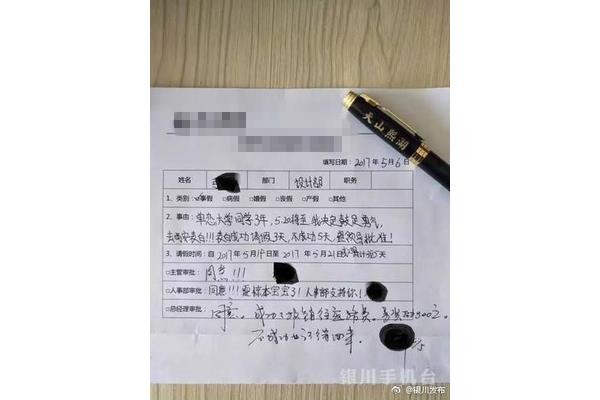 天山熙湖
填写日期：2017年5月6日
姓名 部门 设计部 职务
1. 类别：☑事假 □病假 □婚假 □丧假 □产假 □其他
2. 事由：单恋大学同学3年，5.20将至，我决定鼓足勇气，
去西安表白!!!表白成功请假3天，不成功5天，望领导批准！
3. 请假时间：自2017年5月19日至2017年5月21日 或 累计 5天
□主管审批：同意!!!
□人事部审批：同意!!! 要你本宝宝31人事部支持你！
□总经理审批：同意。成功了报销往返路费。奖 500元。
不成功 回来。
银川手机台
@银川发布